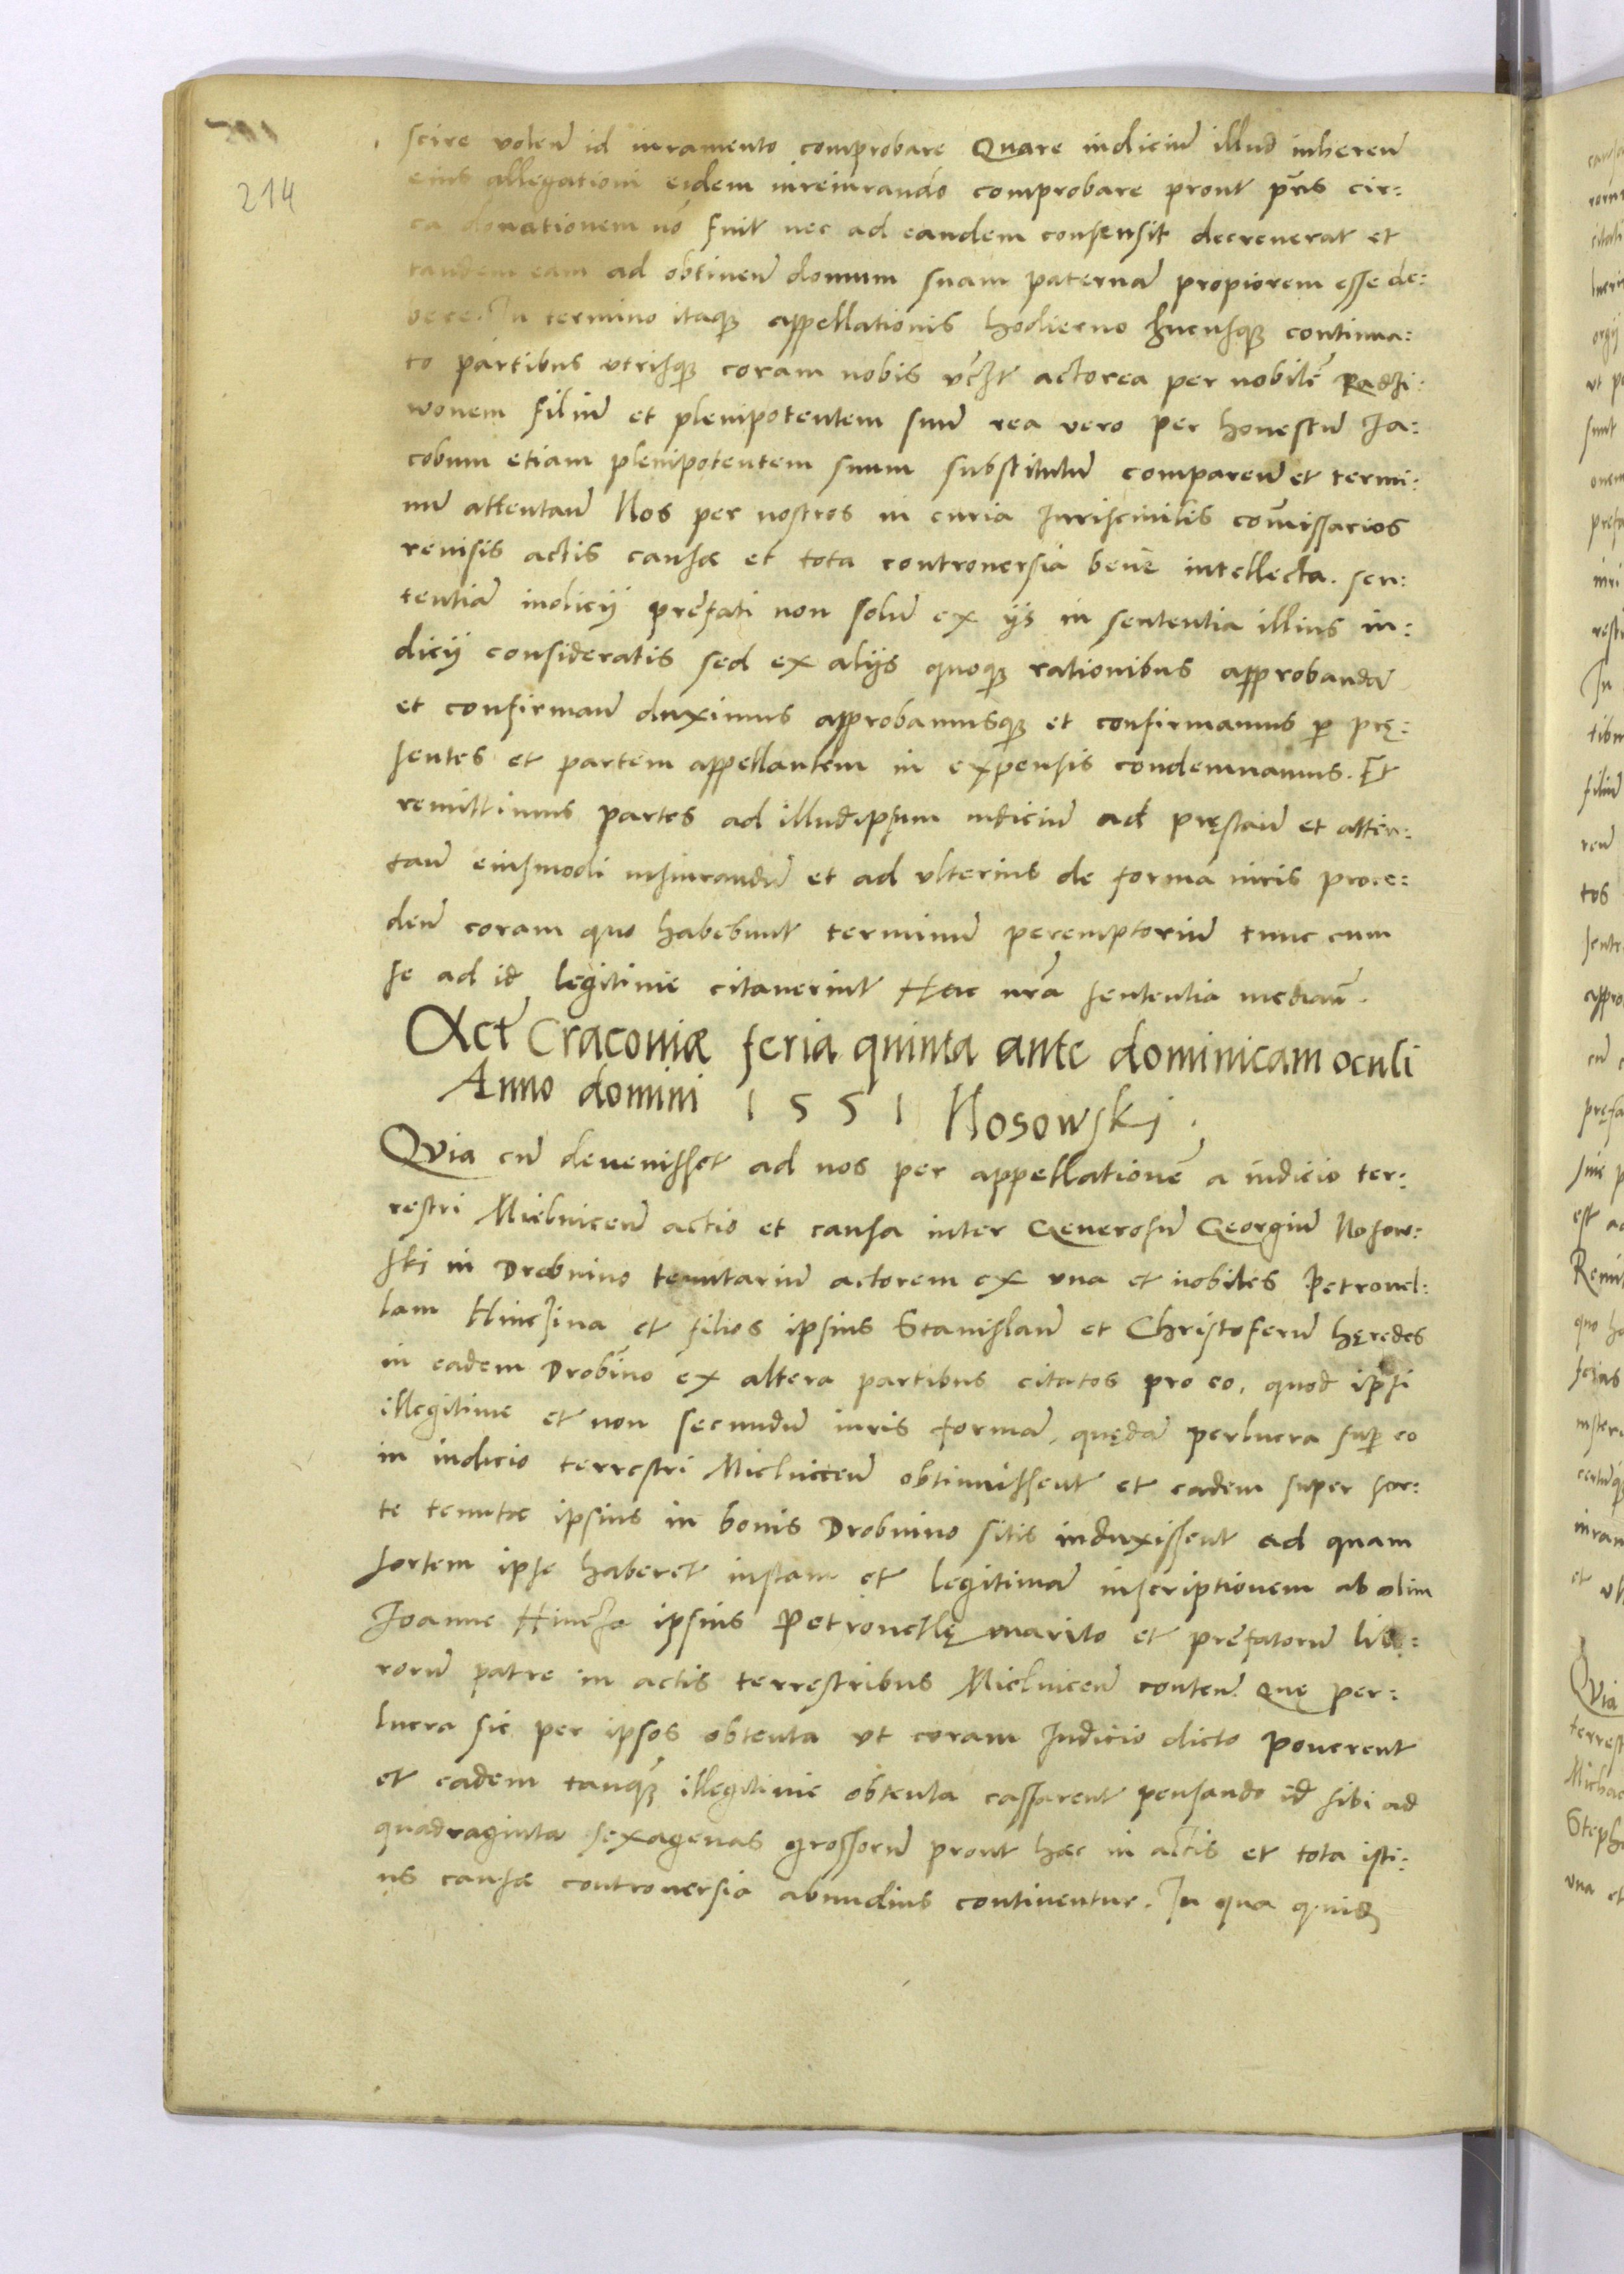 214
scire volen̄ id iuramento comprobare Quare iudiciū illud inheren̄
eius allegationi eidem iureiurando comprobare prout pn̄s cir:
ca donationem nō fuit nec ad eandem consensit decreverat et
tandem eam ad obtinen̄ domum suam paternā propiorem esse de:
bere. In termino itaqȝ appellationis hodierno hucusqȝ continua:
to partibus utrisqȝ coram nobis vc̄ȝt actorea per nobilē Radzi:
wonem filiū et plenipotentem suū rea vero per honestū Ja:
cobum etiam plenipotentem suum substitutū comparen̄ et termi:
nū attentan̄ Nos per nostros in curia Juriscivilis com̄issarios
revisis actis causæ et tota controversia bene intellecta. sen:
tentiā iudicij prefati non solū ex ijs in sententia illius iu:
dicij consideratis sed ex alijs quoqȝ rationibus approbandā
et confirman̄ duximus approbamusqȝ et confirmamus p̱ prę:
sentes et partem appellantem in expensis condemnamus. Et
remittimus partes ad illudipsum iudiciū ad pręstan̄ et atten:
tan̄ eiusmodi iusiurandū et ad ulterius de forma iuris proce:
den̄ coram quo habebunt terminū peremptoriū tunc cum
se ad id legitime citaverint Hac nrā sententia median̄.
Act̄ Cracoviæ feria quinta ante dominicam oculi
Anno domini 1551 Nosowskj.
Qvia cū devenisset ad nos per appellationē a iudicio ter:
restri Mielnicen̄ actio et causa inter Generosū Georgiū Nosow:
skj in Drobnino tenutariū actorem ex una et nobiles Petronel:
lam Hinczina et filios ipsius Stanislaū et Christoferū hęredes
in eadem Drobnino ex altera partibus citatos pro eo, quod ipsi
illegitime et non secundū iuris formā, quędā perlucra sup̱ eo
in iudicio terrestri Mielnicen̄ obtinuissent et eadem super sor:
te tenutæ ipsius in bonis Drobnino sitis induxissent ad quam
sortem ipse haberet iustam et legitimā inscriptionem ab olim
Joanne Hincza ipsius Petronellę marito et prefatorū libe:
rorū patre in actis terrestribus Mielnicen̄ conten̄. Quę per:
lucra sic per ipsos obtenta ut coram Judicio dicto ponerent
et eadem tanqȝ illegitime obtenta cassarent pensando id sibi ad
quadraginta sexagenas grossorū prout hæc in actis et tota isti:
us causæ controversia abundius continentur. In qua quidē